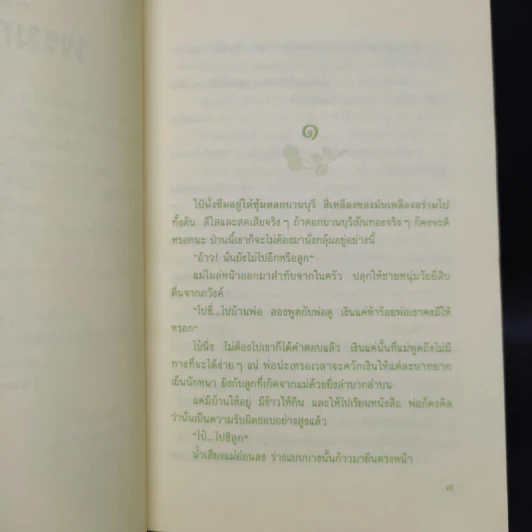 ๑
โป้นั่งซึมอยู่ใต้ซุ้มดอกบานบุรี สีเหลืองของมันเหลืองอร่ามไป
ทั้งต้น สีใสและสดเสียจริง ๆ ถ้าดอกบานบุรีเป็นทองจริง ๆ ก็คงจะดี
หรอกนะ ป่านนี้เขาก็จะไม่ต้องมานั่งกลุ้มอยู่อย่างนี้
"อ้าว! นั่นยังไม่ไปอีกหรือลูก"
แม่โผล่หน้าออกมาสำทับจากในครัว ปลุกให้ชายหนุ่มวัยยี่สิบ
ตื่นจากภวังค์
"ไปซี่...ไปบ้านพ่อ ลองพูดกับพ่อดู เงินแค่ห้าร้อยพ่อเขาคงมีให้
หรอก"
โป้นิ่ง ไม่ต้องไปเขาก็ได้คำตอบแล้ว เงินแค่นั้นที่แม่พูดถึงไม่มี
ทางที่จะได้ง่าย ๆ แน่ พ่อน่ะเหรอเวลาจะควักเงินให้แต่ละบาทยาก
เย็นนักหนา ยิ่งกับลูกที่เกิดจากแม่ด้วยยิ่งลำบากลำบน
แค่มีบ้านให้อยู่ มีข้าวให้กิน และให้ไปเรียนหนังสือ พ่อก็คงคิด
ว่านั่นเป็นความรับผิดชอบอย่างสูงแล้ว
"โป้...ไปซีลูก"
น้ำเสียงแม่อ่อนลง ร่างแบบบางนั้นก้าวมายืนตรงหน้า